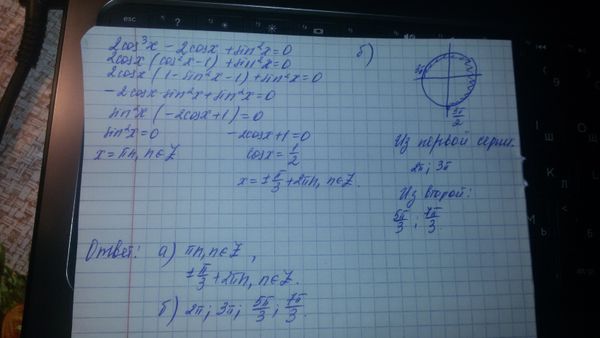 esc
2cos³x − 2cosx + sin²x = 0
2cosx (cos²x − 1) + sin²x = 0
2cosx (1 − sin²x − 1) + sin²x = 0
−2cosx sin²x + sin²x = 0
sin²x (−2cosx + 1) = 0
sin²x = 0 −2cosx + 1 = 0
x = πn, n∈Z cosx = 1/2
x = ±π/3 + 2πn, n∈Z.
б)
3π
Из первой серии:
2π; 3π
Из второй:
5π/3; 7π/3
Ответ: а) πn, n∈Z,
±π/3 + 2πn, n∈Z.
б) 2π; 3π; 5π/3; 7π/3.